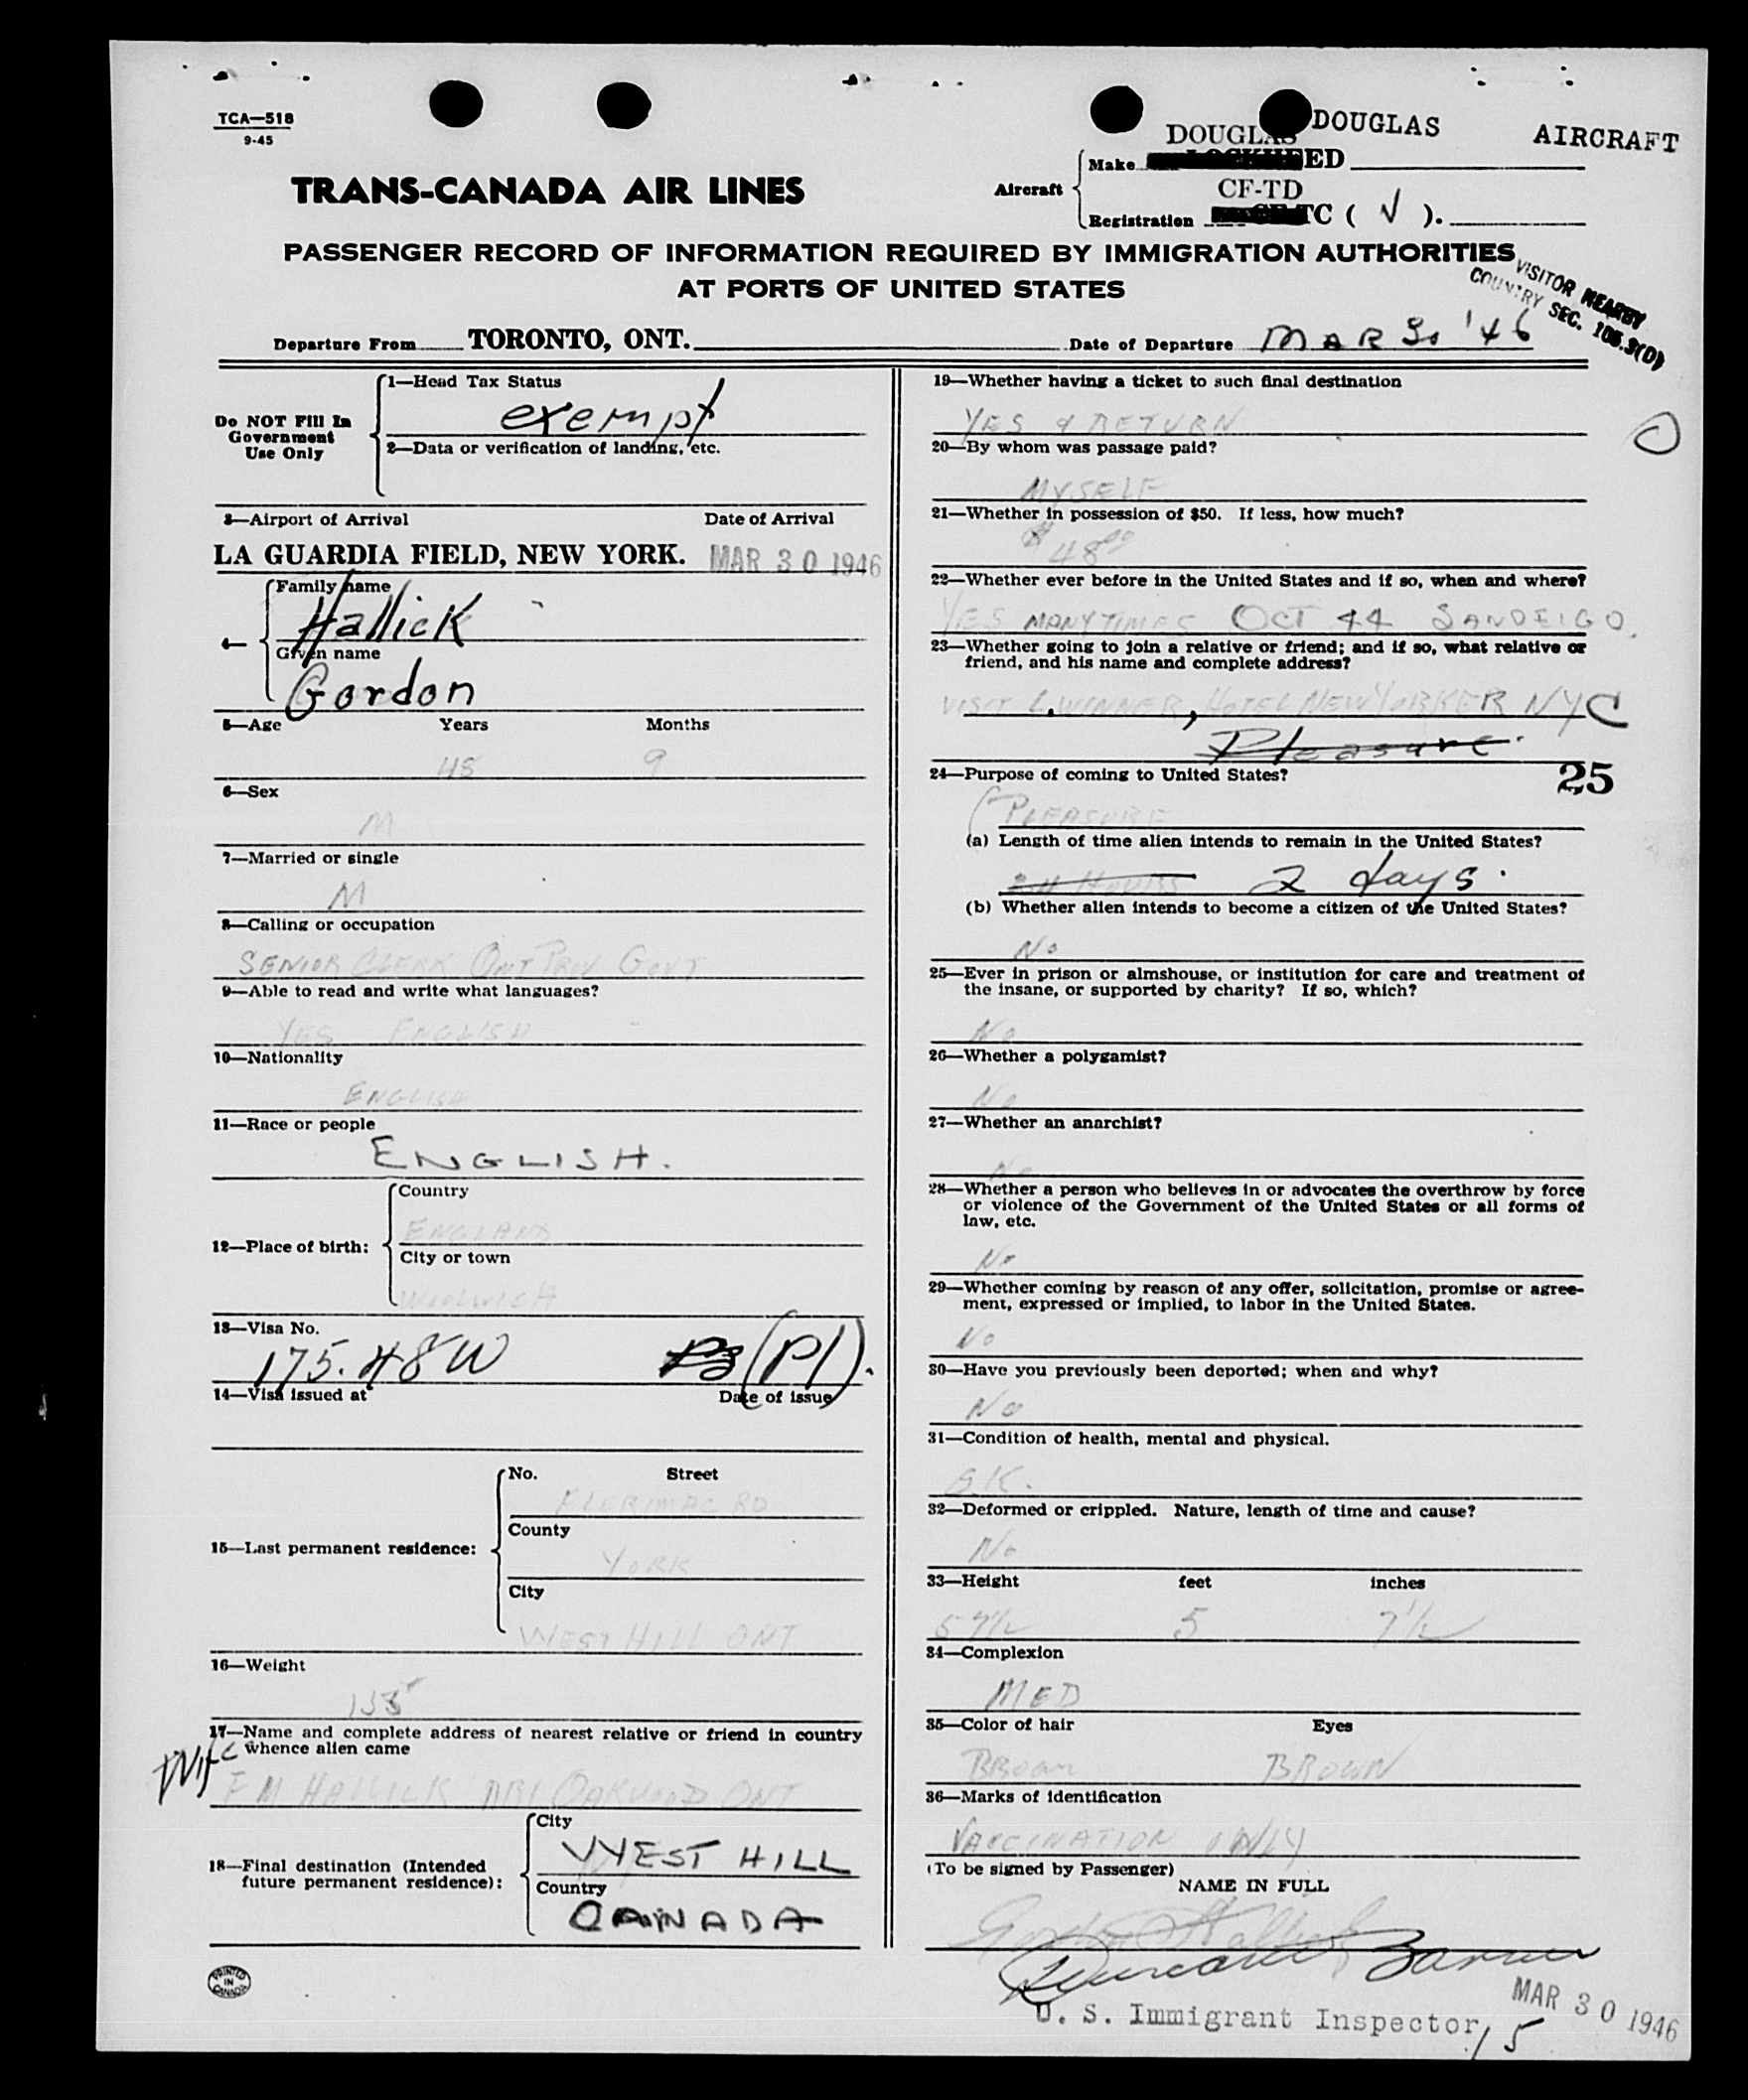 TCA—518
9-45
DOUGLAS DOUGLAS AIRCRAFT
TRANS-CANADA AIR LINES
Aircraft
Make LOCKHEED
CF-TD
Registration CF-TC ( √ ).
PASSENGER RECORD OF INFORMATION REQUIRED BY IMMIGRATION AUTHORITIES
AT PORTS OF UNITED STATES
VISITOR NEARBY
COUNTRY SEC. 105.3(D)
Departure From TORONTO, ONT.
Date of Departure MAR 30 '46
Do NOT Fill In
Government
Use Only
1—Head Tax Status
exempt
2—Data or verification of landing, etc.
3—Airport of Arrival Date of Arrival
LA GUARDIA FIELD, NEW YORK. MAR 30 1946
4—
Family name
Hallick
Given name
Gordon
5—Age Years Months
48 9
6—Sex
M
7—Married or single
M
8—Calling or occupation
SENIOR CLERK ONT PROV GOVT
9—Able to read and write what languages?
YES ENGLISH
10—Nationality
ENGLISH
11—Race or people
ENGLISH.
12—Place of birth:
Country
ENGLAND
City or town
WOOLWICH
13—Visa No.
175.48W (P1).
14—Visa issued at Date of issue
15—Last permanent residence:
No. Street
RD
County
YORK
City
WEST HILL ONT
16—Weight
135
17—Name and complete address of nearest relative or friend in country
whence alien came
Wife
F M HALLICK OAKWOOD ONT
18—Final destination (Intended
future permanent residence):
City
WEST HILL
Country
CANADA
PRINTED
IN
CANADA
19—Whether having a ticket to such final destination
YES & RETURN
20—By whom was passage paid?
MYSELF
21—Whether in possession of $50. If less, how much?
$48.00
22—Whether ever before in the United States and if so, when and where?
YES MANY TIMES OCT 44 SANDEIGO.
23—Whether going to join a relative or friend; and if so, what relative or
friend, and his name and complete address?
VISIT L. WINNER, HOTEL NEW YORKER NYC
Pleasure.
24—Purpose of coming to United States?
25
PLEASURE
(a) Length of time alien intends to remain in the United States?
24 HOURS 2 days.
(b) Whether alien intends to become a citizen of the United States?
No
25—Ever in prison or almshouse, or institution for care and treatment of
the insane, or supported by charity? If so, which?
No
26—Whether a polygamist?
No
27—Whether an anarchist?
No
28—Whether a person who believes in or advocates the overthrow by force
or violence of the Government of the United States or all forms of
law, etc.
No
29—Whether coming by reason of any offer, solicitation, promise or agree-
ment, expressed or implied, to labor in the United States.
No
30—Have you previously been deported; when and why?
No
31—Condition of health, mental and physical.
O.K.
32—Deformed or crippled. Nature, length of time and cause?
No
33—Height feet inches
5 7½ 5 7½
34—Complexion
MED
35—Color of hair Eyes
BROWN BROWN
36—Marks of identification
VACCINATION ONLY
(To be signed by Passenger)
NAME IN FULL
Gordon Hallick
U. S. Immigrant Inspector
MAR 30 1946
15